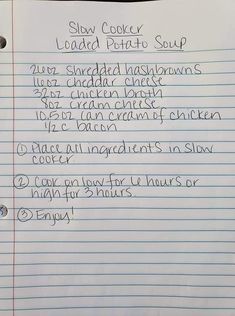 Slow Cooker
Loaded Potato Soup
26oz shredded hashbrowns
16oz cheddar cheese
32oz chicken broth
8oz cream cheese
10.5oz can cream of chicken
1/2 c bacon
① Place all ingredients in slow
cooker
② Cook on low for 6 hours or
high for 3 hours.
③ Enjoy!